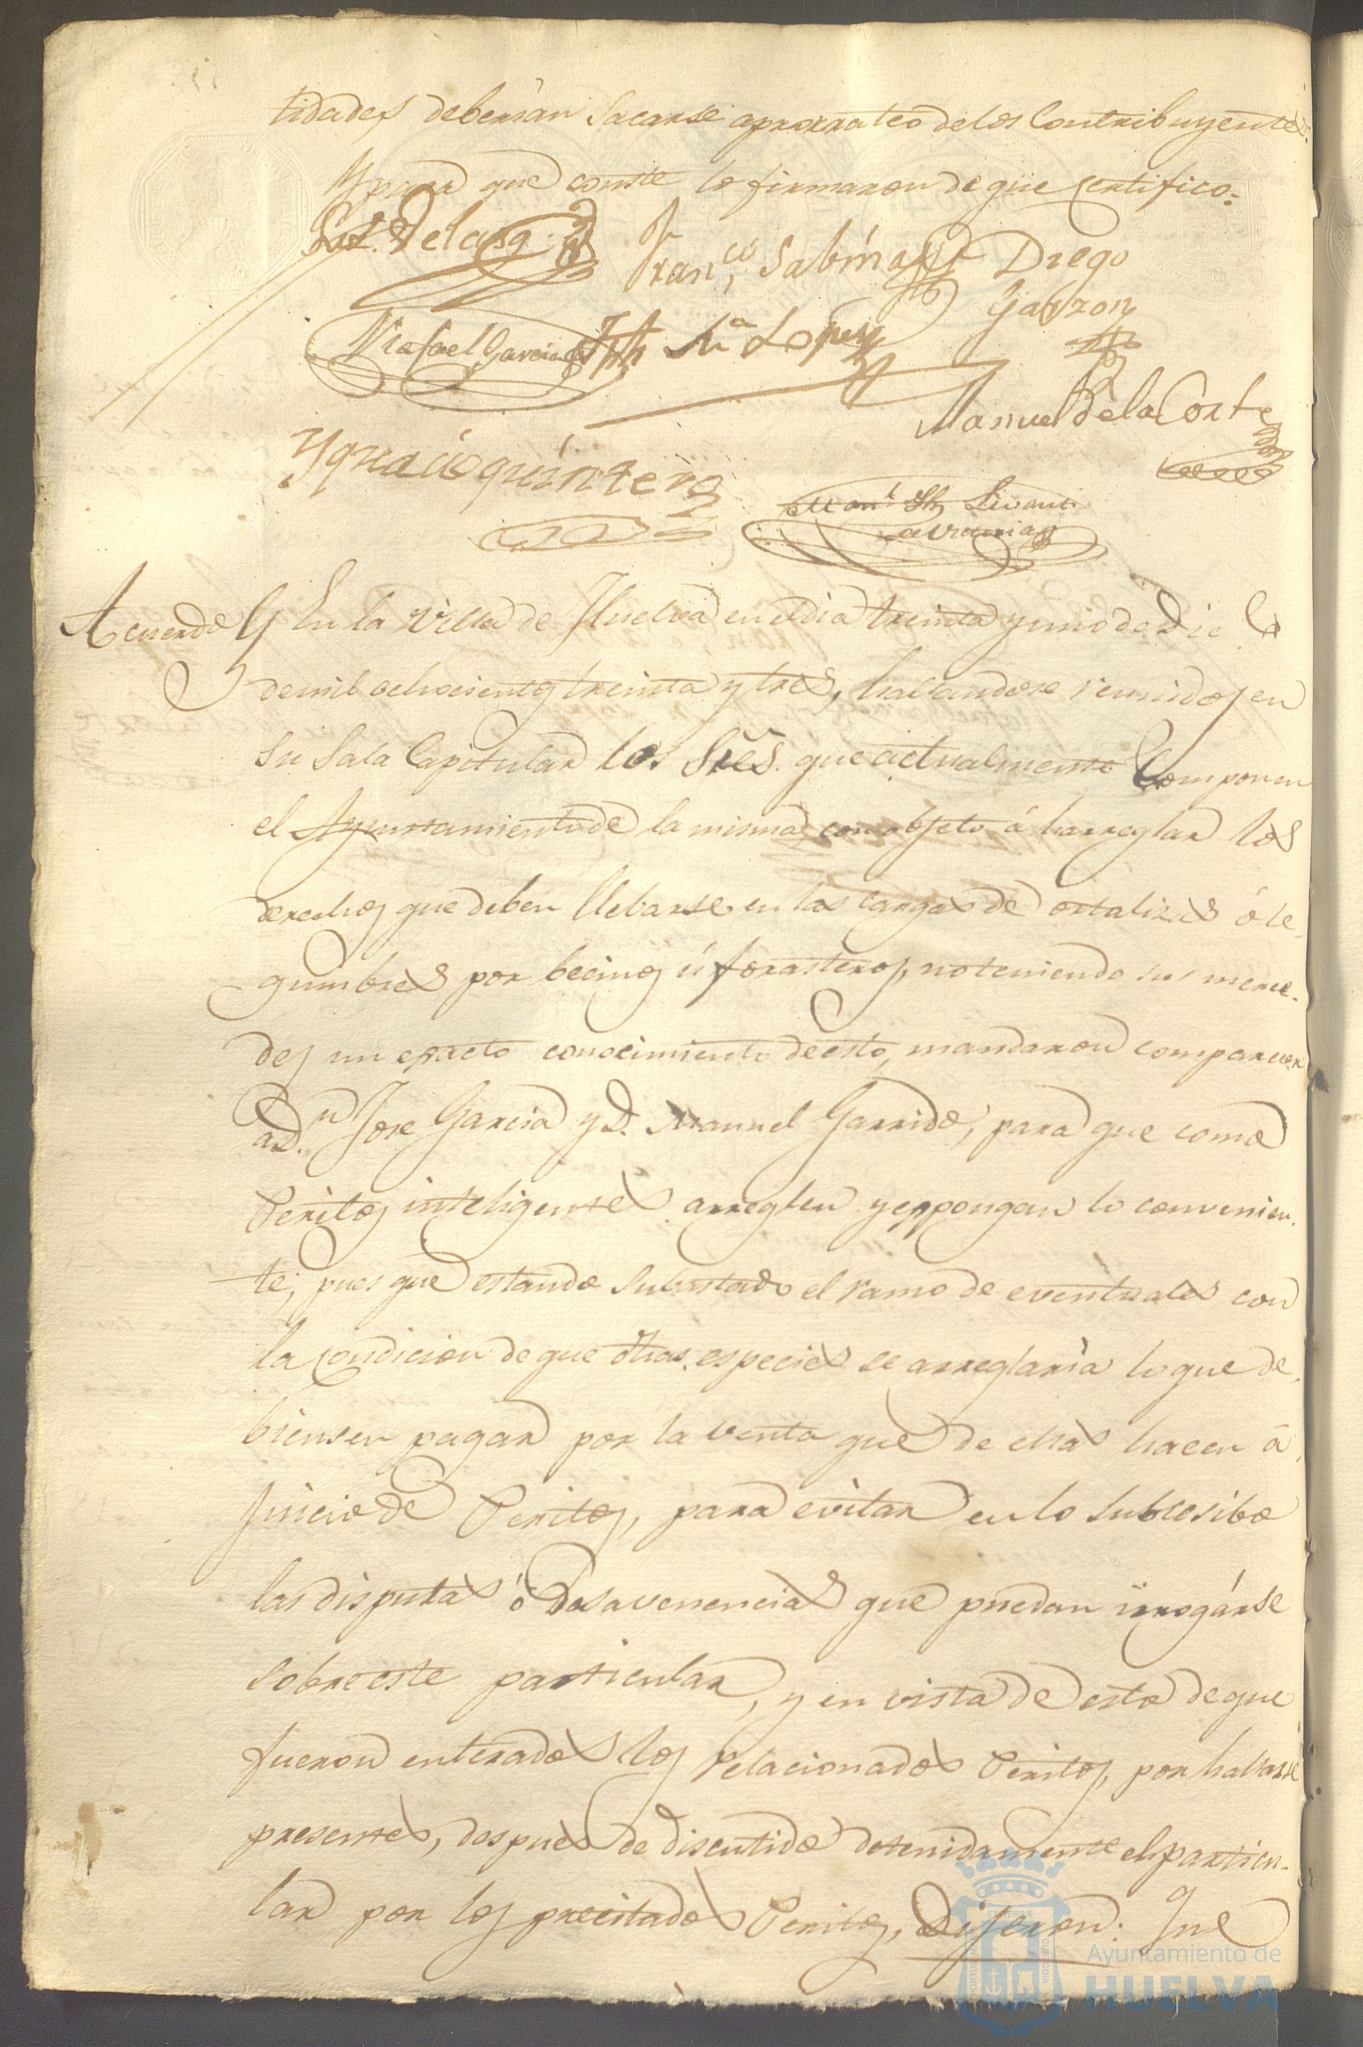 tidades deberian sacarse aprorrateo delos Contribuyentes.
Y para que conste lo firmaron de que certifico=
Fran,co Sabina
Diego
Garzon
Rafael Garcia
Ma Lopez
Manuel Dela Corte
Ygnacio quintero
Acuerdo Y En la Villa de Huelva en el dia treinta y uno de Dic
demil ochocientos treinta y tres, hallandose reunidos en
su Sala Capitular los Sres. que actualmente Componen
el Ayuntamiento de la misma, con objeto á harreglar los
derechos que deben llebarse en las cargas de ortalizas ó le-
gumbres por becinos ú forasteros, noteniendo sus merce-
des un exacto conocimiento deesto, mandaron comparecer
a Dn Jose Garcia y D. Manuel Garrido, para que como
Peritos inteligentes arreglen y expongan lo convenien-
te; pues que estando subastado el ramo de eventuales con
la condicion de que dhas. especies se arreglaria lo que de-
biensen pagar por la venta que de ellas hacen á
juicio de Peritos, para evitar en lo subcesibo
las disputas ó desavenencias que puedan irrogárse
sobre este particular, y en vista de esto de que
fueron enterados los relacionados Peritos, por hallarse
presentes, despues de discutido detenidamente el particu-
lar por los precitados Peritos, Dijeron: Que
Ayuntamiento de
HUELVA